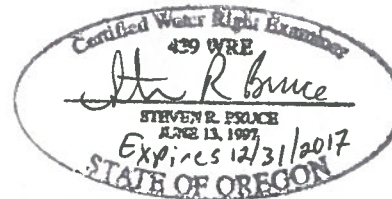 Certified Water Right Examiner
429 WRE
Stn R Bruce
STEVEN R. BRUCE
JUNE 13, 1997
Expires 12/31/2017
STATE OF OREGON